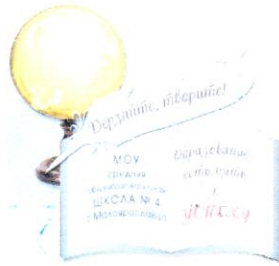 Дерзайте, творите!
МОУ
средняя
общеобразовательная
ШКОЛА № 4
г. Малоярославец
Образование
есть путь
к
успеху